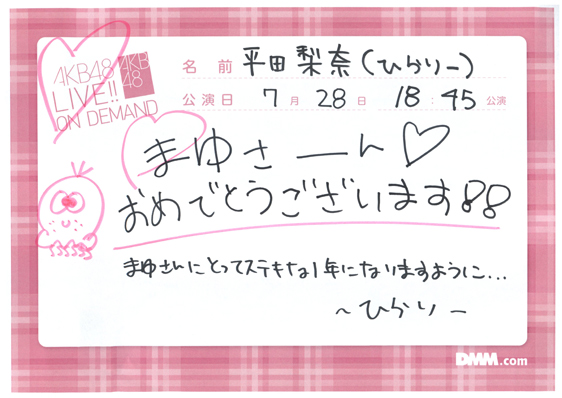 AKB48
LIVE!!
ON DEMAND
AKB
48
名前 平田梨奈(ひらりー)
公演日 7月28日 18:45公演
まゆさーん♡
おめでとうございます!!
まゆさんにとってステキな1年になりますように...
~ひらりー
DMM.com